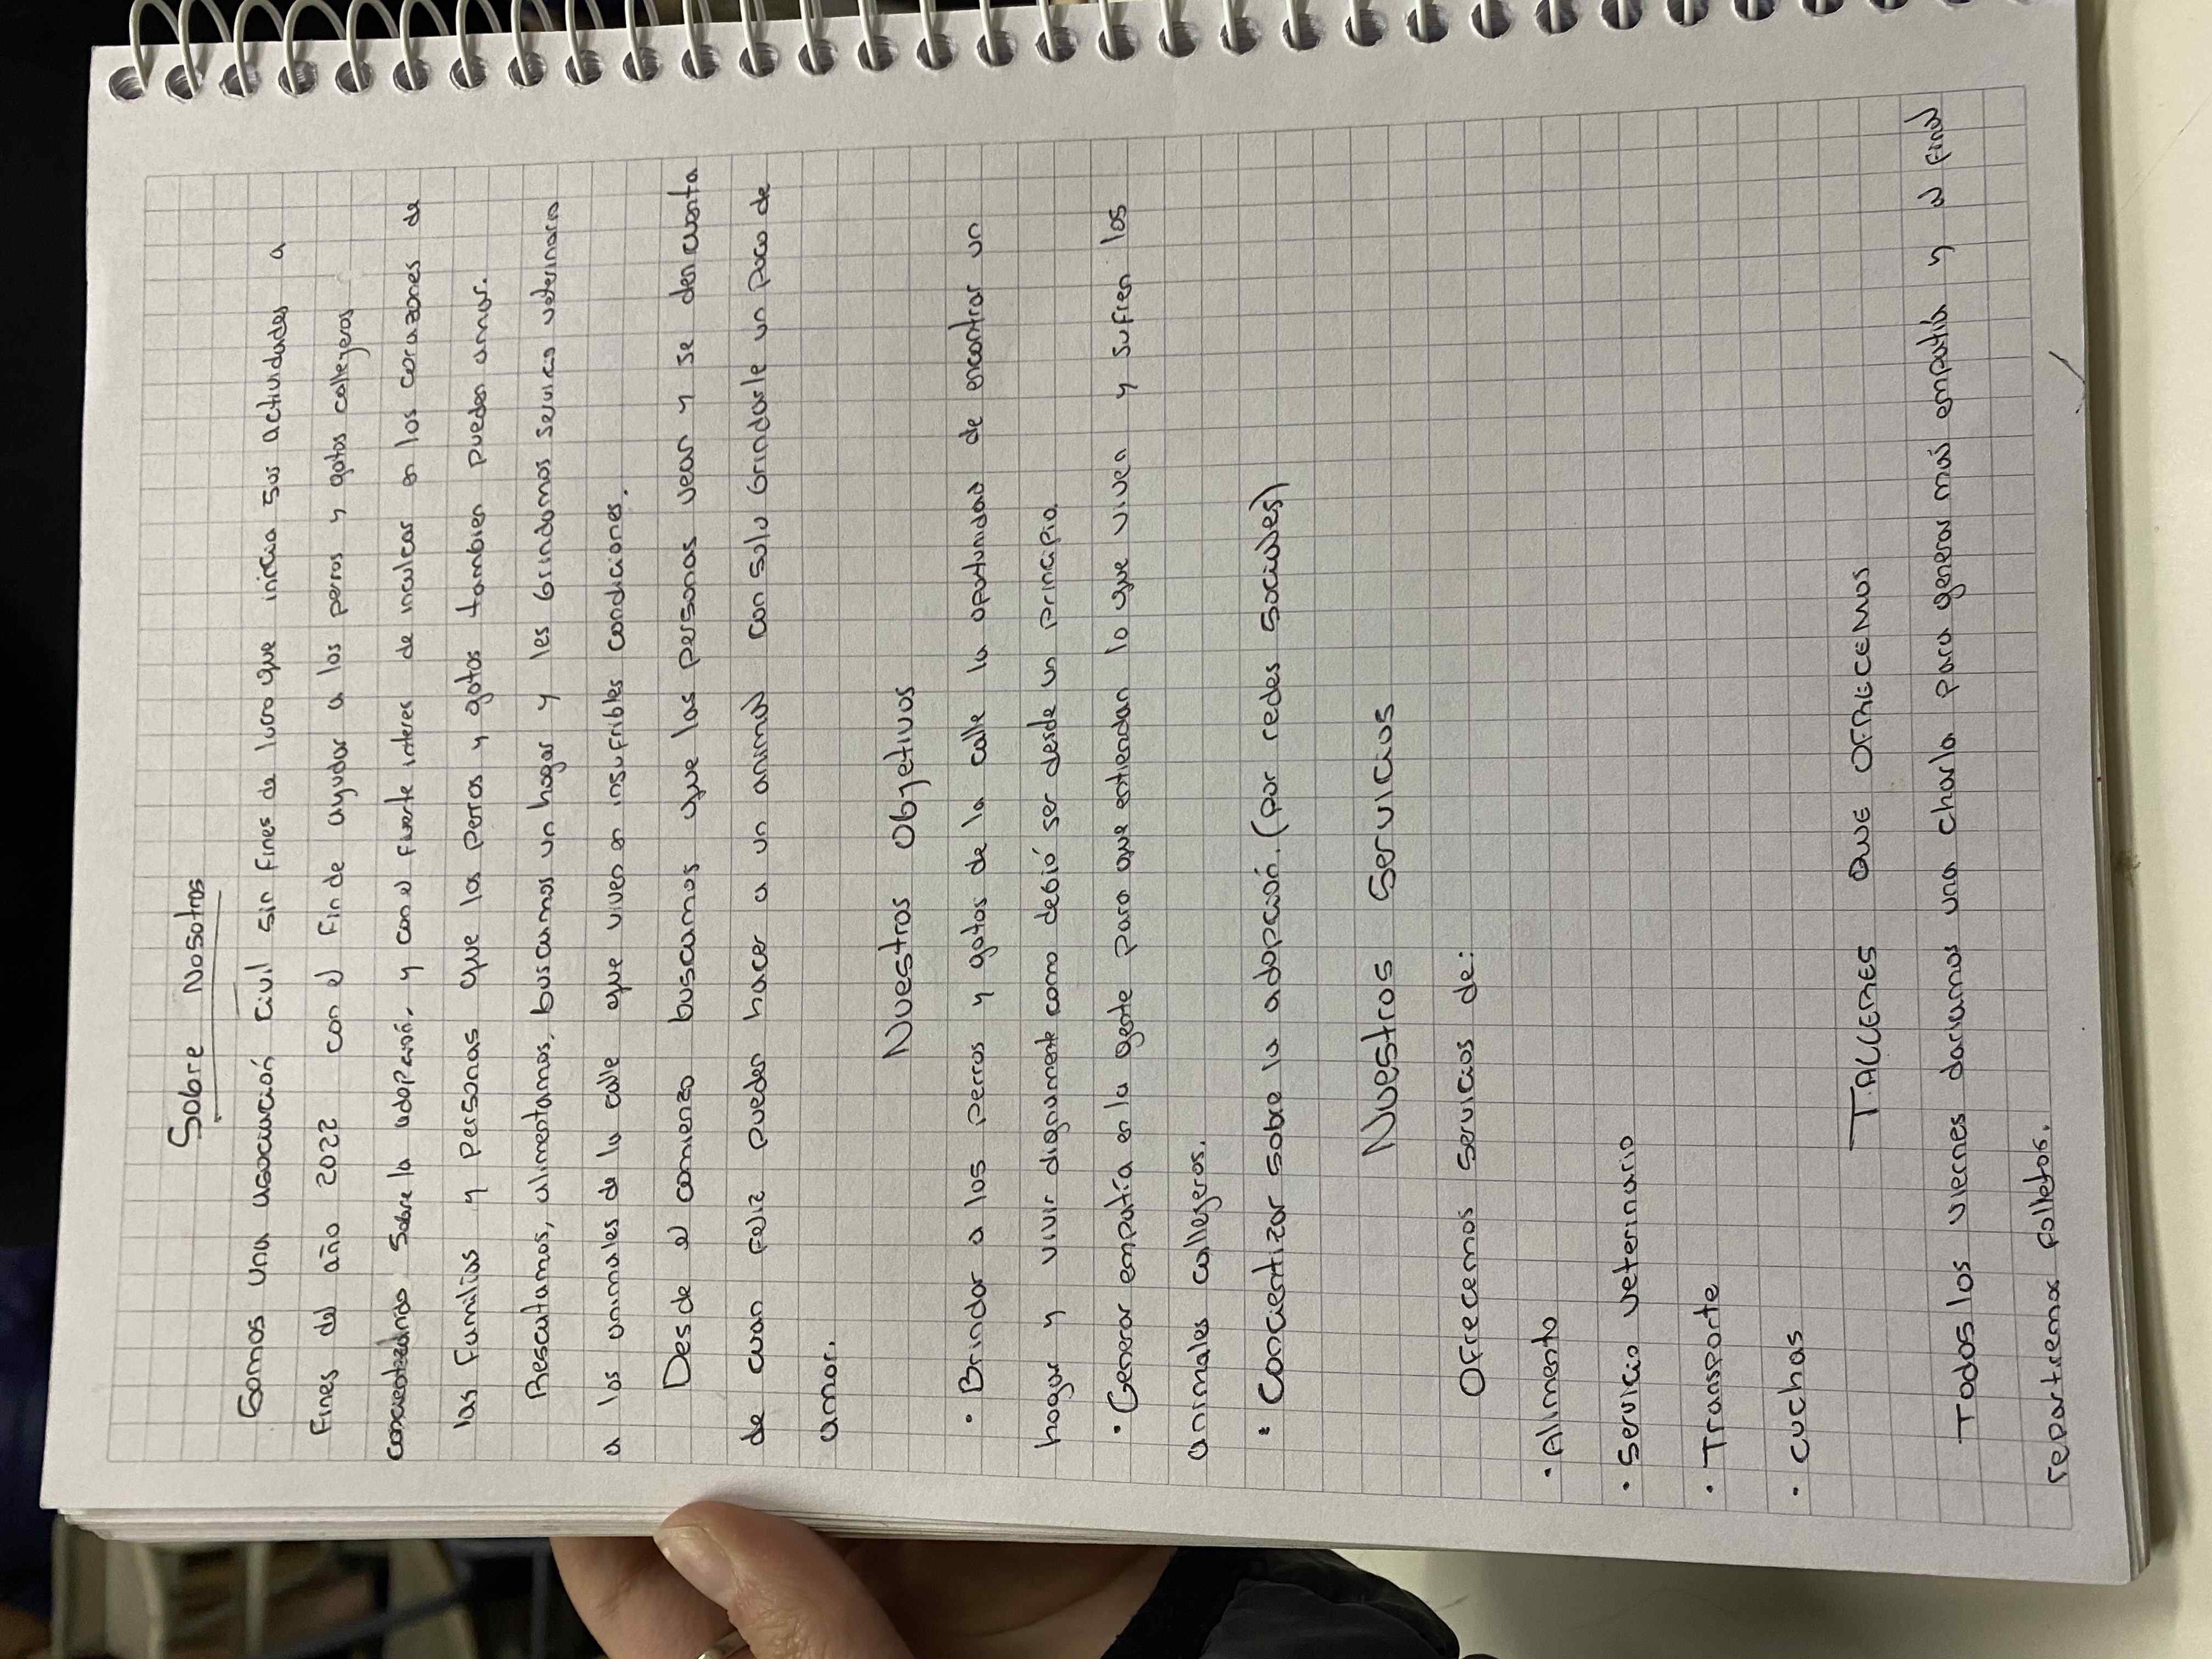 Sobre Nosotros
Somos una asociación civil sin fines de lucro que inicia sus actividades a
fines del año 2022 con el fin de ayudar a los perros y gatos callejeros
concientizando sobre la adopción, y con el fuerte interes de inculcar en los corazones de
las familias y personas que los perros y gatos tambien pueden amar.
Rescatamos, alimentamos, buscamos un hogar y les brindamos servicio veterinario
a los animales de la calle que viven en insufribles condiciones.
Desde el comienzo buscamos que las personas vean y se den cuenta
de cuan feliz pueden hacer a un animal con solo brindarle un poco de
amor.
Nuestros Objetivos
• Brindar a los perros y gatos de la calle la oportunidad de encontrar un
hogar y vivir dignamente como debió ser desde un principio.
• Generar empatía en la gente para que entiendan lo que viven y sufren los
animales callejeros.
• Concientizar sobre la adopción. (por redes sociales)
Nuestros Servicios
Ofrecemos servicios de:
• Alimento
• Servicio veterinario
• Transporte
• cuchas
TALLERES QUE OFRECEMOS
Todos los viernes dariamos una charla para generar más empatía y al final
repartiremos folletos.